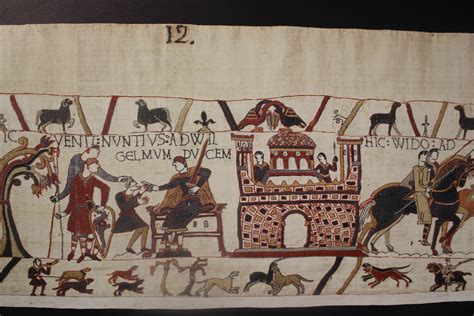 12.
IC VENIT: NUNTIUS: AD WIL
GELMUM DUCEM
HIC: WIDO: AD